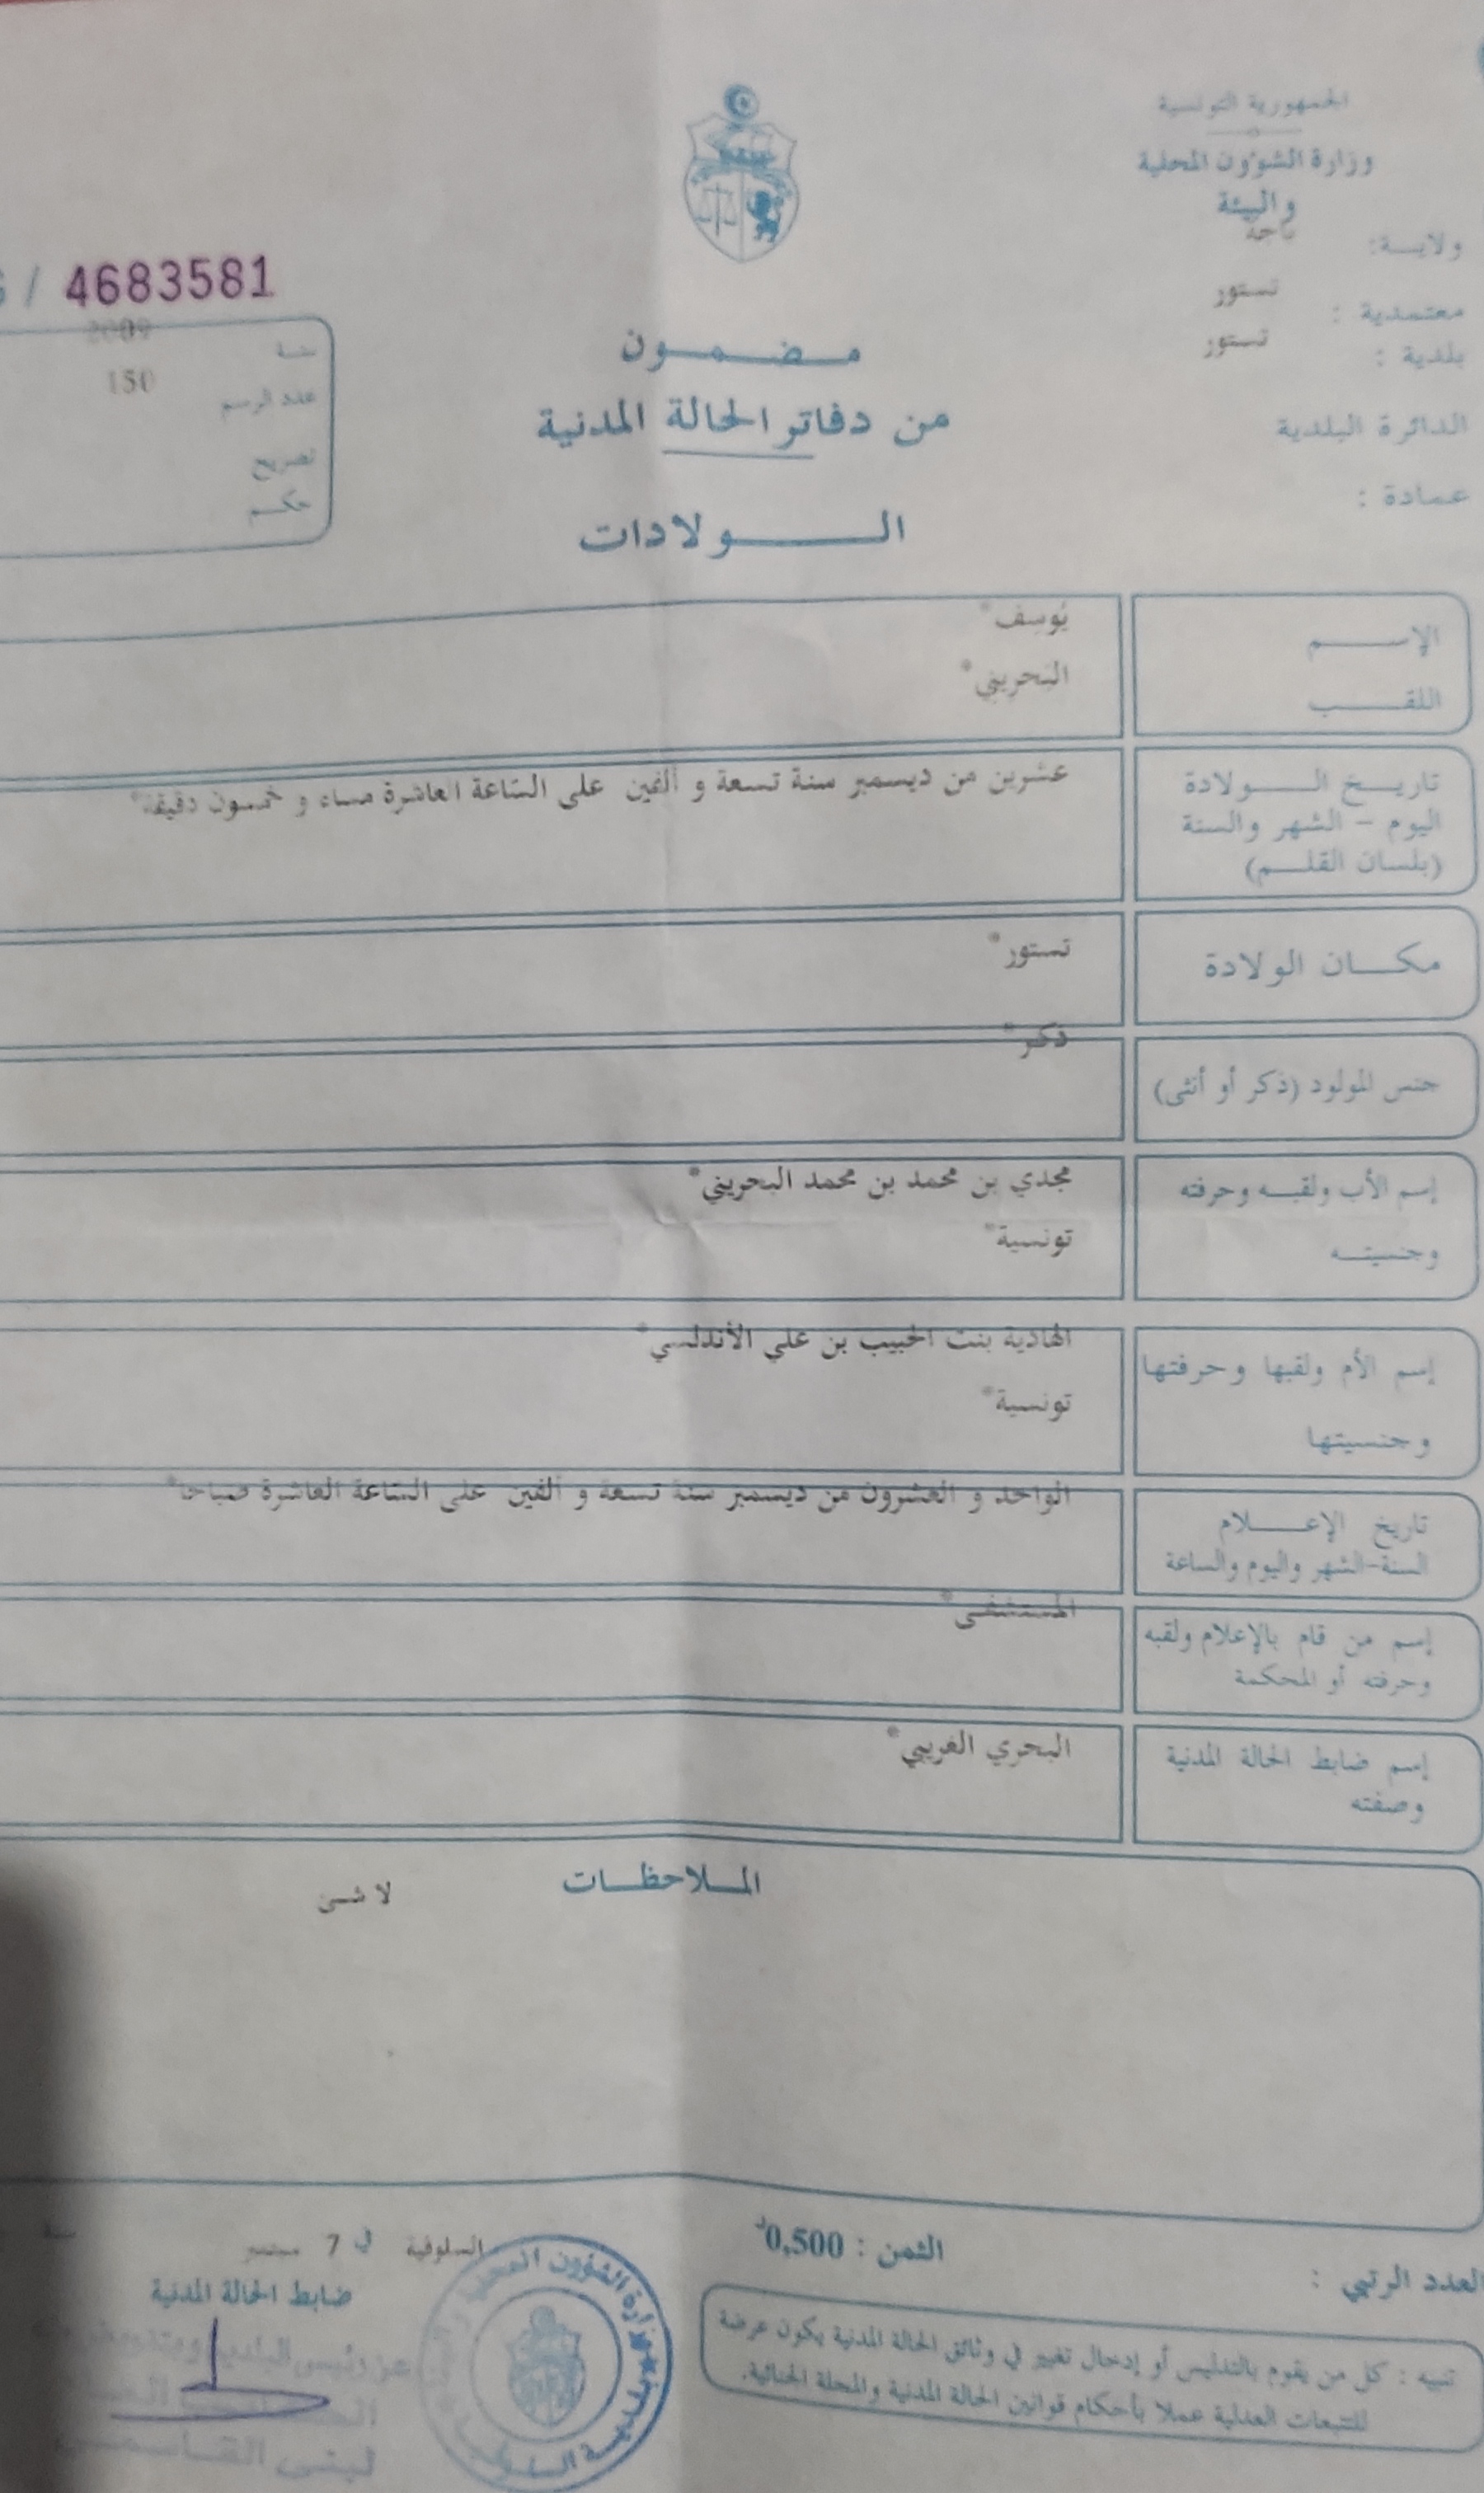 الجمهورية التونسية
وزارة الشؤون المحلية
والبيئة
ولايـــة: باجة
معتمدية : تستور
بلدية : تستور
الدائرة البلدية
عمادة :
/ 4683581
سنة 2009
عدد الرسم 150
تصريح
حكم
مـضـمـون
من دفاتر الحالة المدنية
الـــولادات
الإســـم يُوسف*
اللقـــب البحريني*
تاريــخ الـــولادة عشرين من ديسمبر سنة تسعة و ألفين على السّاعة العاشرة مساء و خمسون دقيقة*
اليوم - الشهر والسنة
(بلسان القلـــم)
مكـــان الولادة تستور*
جنس المولود (ذكر أو أنثى) ذكر*
إسم الأب ولقبــه وحرفته مجدي بن محمد بن محمد البحريني*
وجنسيتــه تونسية*
إسم الأم ولقبها وحرفتها الهادية بنت الحبيب بن علي الأندلسي*
وجنسيتها تونسية*
تاريخ الإعـــلام الواحد و العشرون من ديسمبر سنة تسعة و ألفين على السّاعة العاشرة صباحا*
السنة-الشهر واليوم والساعة
إسم من قام بالإعلام ولقبه المستشفى*
وحرفته أو المحكمة
إسم ضابط الحالة المدنية البحري الغريبي*
وصفته
المــلاحظــات
لا شئ
العدد الرتبي :
الثمن : 0,500د
السلوقية في 7 سبتمبر سنة
ضابط الحالة المدنية
تنبيه : كل من يقوم بالتدليس أو إدخال تغيير في وثائق الحالة المدنية يكون عرضة
للتتبعات العدلية عملا بأحكام قوانين الحالة المدنية والمجلة الجنائية.
وزارة الشؤون المحلية